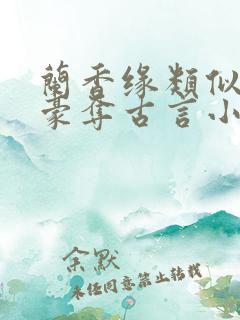 蘭香缘類似
豪奪古言小
余默
未经同意禁止转载